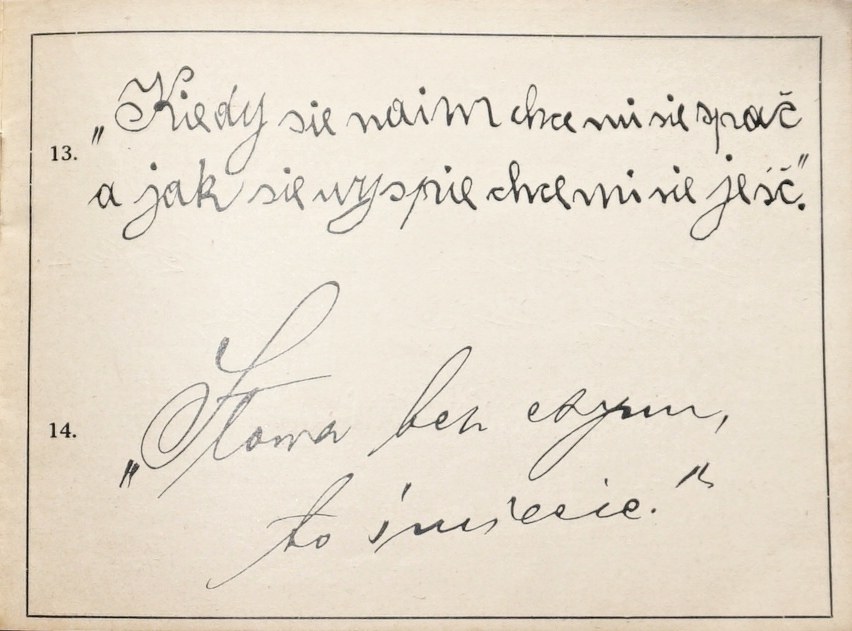 13. „Kiedy sie naim chce mi sie spać
a jak sie wyspie chce mi sie jeść."
14. „Słowa bez czynu,
to śmiecie."